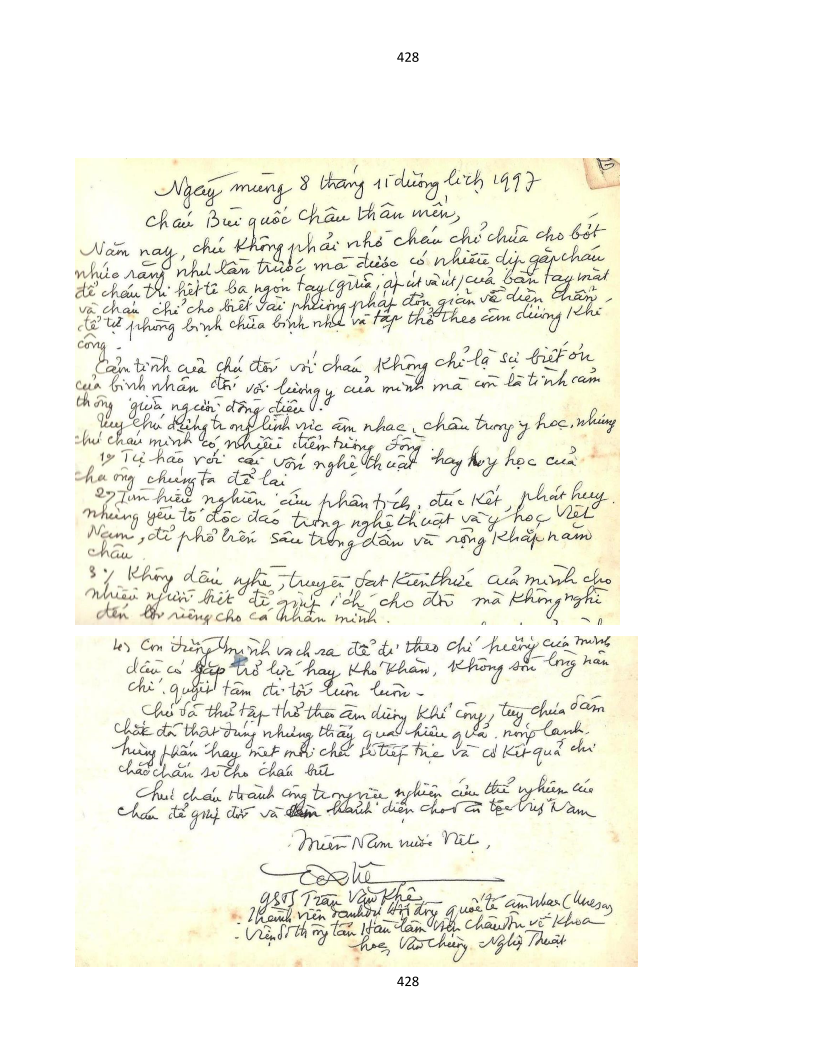 428
Ngày mùng 8 tháng 11 dương lịch 1997
Cháu Bùi quốc Châu thân mến,
Năm nay, chú không phải nhờ cháu chỉ chữa cho bớt
nhức răng như lần trước mà được có nhiều dịp gặp cháu
để cháu trị hết tê ba ngón tay (giữa, áp út và út) của bàn tay mặt
và cháu chỉ cho biết vài phương pháp đơn giản về diện chẩn
để tự phòng bịnh chữa bịnh nhẹ và tập thở theo âm dương Khí
công.
Cảm tình của chú đối với cháu không chỉ là sự biết ơn
của bịnh nhân đối với lương y của mình mà còn là tình cảm
thông giữa người đồng điệu.
Tuy chú đứng trong lĩnh vực âm nhạc, cháu trong y học, nhưng
chú cháu mình có nhiều điểm tương đồng.
1) Tự hào với cái vốn nghệ thuật hay y học của
cha ông chúng ta để lại
2) Tìm hiểu nghiên cứu phân tích, đúc kết, phát huy
những yếu tố độc đáo trong nghệ thuật và y học Việt
Nam, để phổ biến sâu trong dân và rộng khắp năm
châu.
3) Không dấu nghề, truyền đạt kiến thức của mình cho
nhiều người biết để giúp ích cho đời mà không nghĩ
đến lợi riêng cho cá nhân mình.
4) Con đường mình vạch ra để đi theo chí hướng của mình
dầu có gặp trở lực hay khó khăn, không sờn lòng nản
chí, quyết tâm đi tới luôn luôn.
Chú đã thử tập thở theo âm dương khí công, tuy chưa dám
chắc đã thật đúng nhưng thấy qua hiệu quả nóng lạnh,
hưng phấn hay mệt mỏi chú sẽ tiếp tục và có kết quả chi
chắc chắn sẽ cho cháu biết
Chúc cháu thành công trong việc nghiên cứu thử nghiệm của
cháu để giúp đời và hãnh diện cho dân tộc Việt Nam
Miền Nam nước Việt,
GSTS Trần Văn Khê
Thành viên danh dự Hội đồng quốc tế âm nhạc (Unesco)
- Viện sĩ thông tấn Hàn lâm viện châu Âu về Khoa
học, Văn chương Nghệ Thuật
428